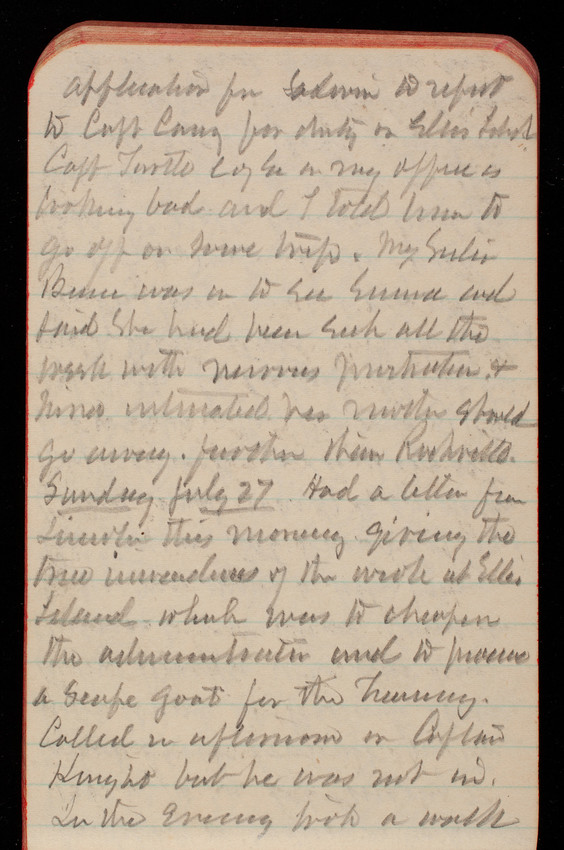 application for to report
to Capt Casey for duty on Ellis Island
Capt Turtle in my office is
looking bad and I told him to
go off on some trip. My
was in to see Emma and
said she had been sick all the
week with nervous prostration +
Nina intimated her mother should
go away further than Rockville.
Sunday July 27 Had a letter from
Lincoln this morning giving the
true inwardness of the work at Ellis
Island which was to cheapen
the administration and to procure
a scape goat for the Treasury.
Called in afternoon on Captain
Knight but he was not in.
In the evening took a walk